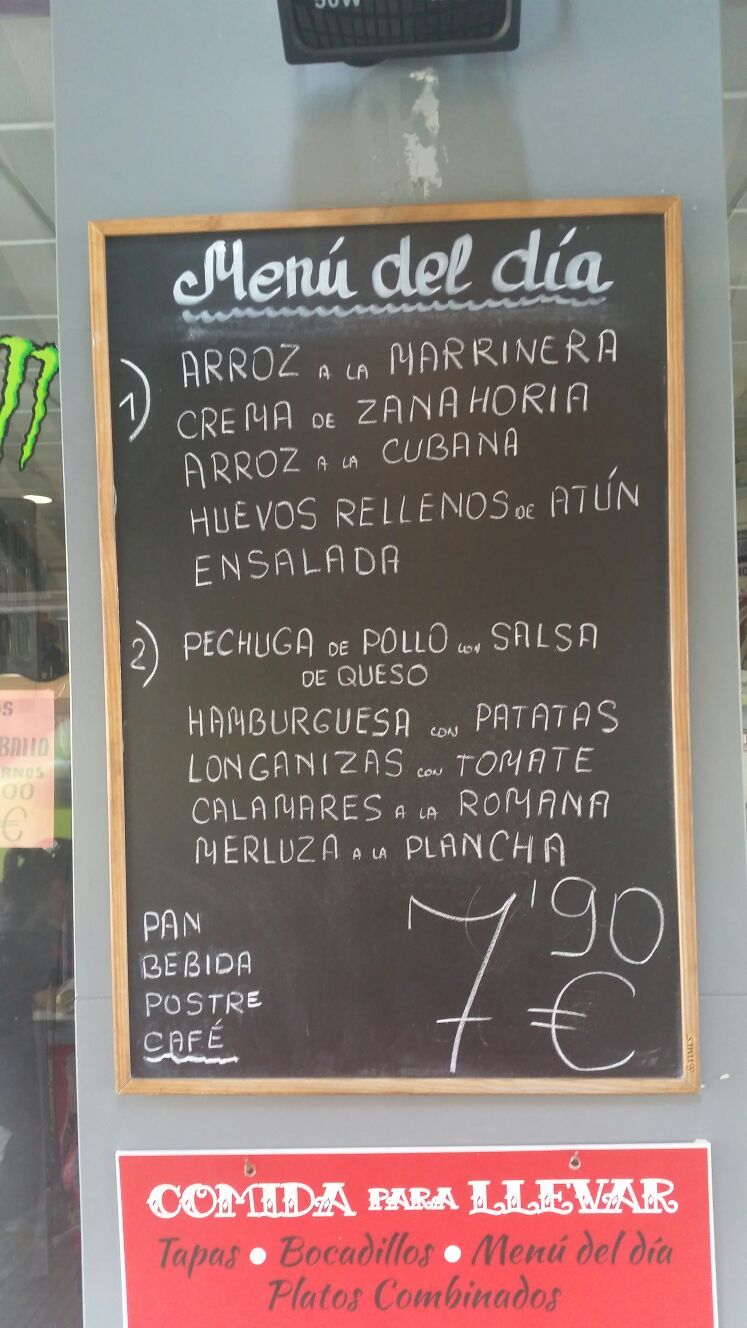 50W
Menú del día
1) ARROZ A LA MARRINERA
CREMA DE ZANAHORIA
ARROZ A LA CUBANA
HUEVOS RELLENOS DE ATÚN
ENSALADA
2) PECHUGA DE POLLO CON SALSA
DE QUESO
HAMBURGUESA CON PATATAS
LONGANIZAS CON TOMATE
CALAMARES A LA ROMANA
MERLUZA A LA PLANCHA
PAN
BEBIDA
POSTRE
CAFÉ
7'90
€
COMIDA PARA LLEVAR
Tapas • Bocadillos • Menú del día
Platos Combinados